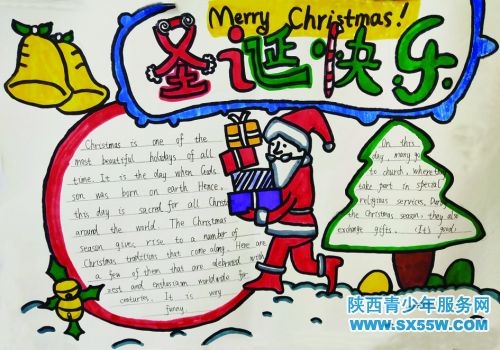 Merry Christmas!
圣诞快乐
Christmas is one of the
most beautiful holidays of all
time. It is the day when Gods
son was born on earth Hence,
this day is sacred for all Christ
around the world. The Christmas
season gives rise to a number of
Christmas traditions that come along. Here are
a few of them that are celebrated with
zest and enthusiasm worldwide for
centuries. It is very
funny.
On this
day, many go
to church, where they
take part in special
religious services. During
the Christmas season, they also
exchange gifts. (It's) good
陕西青少年服务网
WWW.SX55W.COM